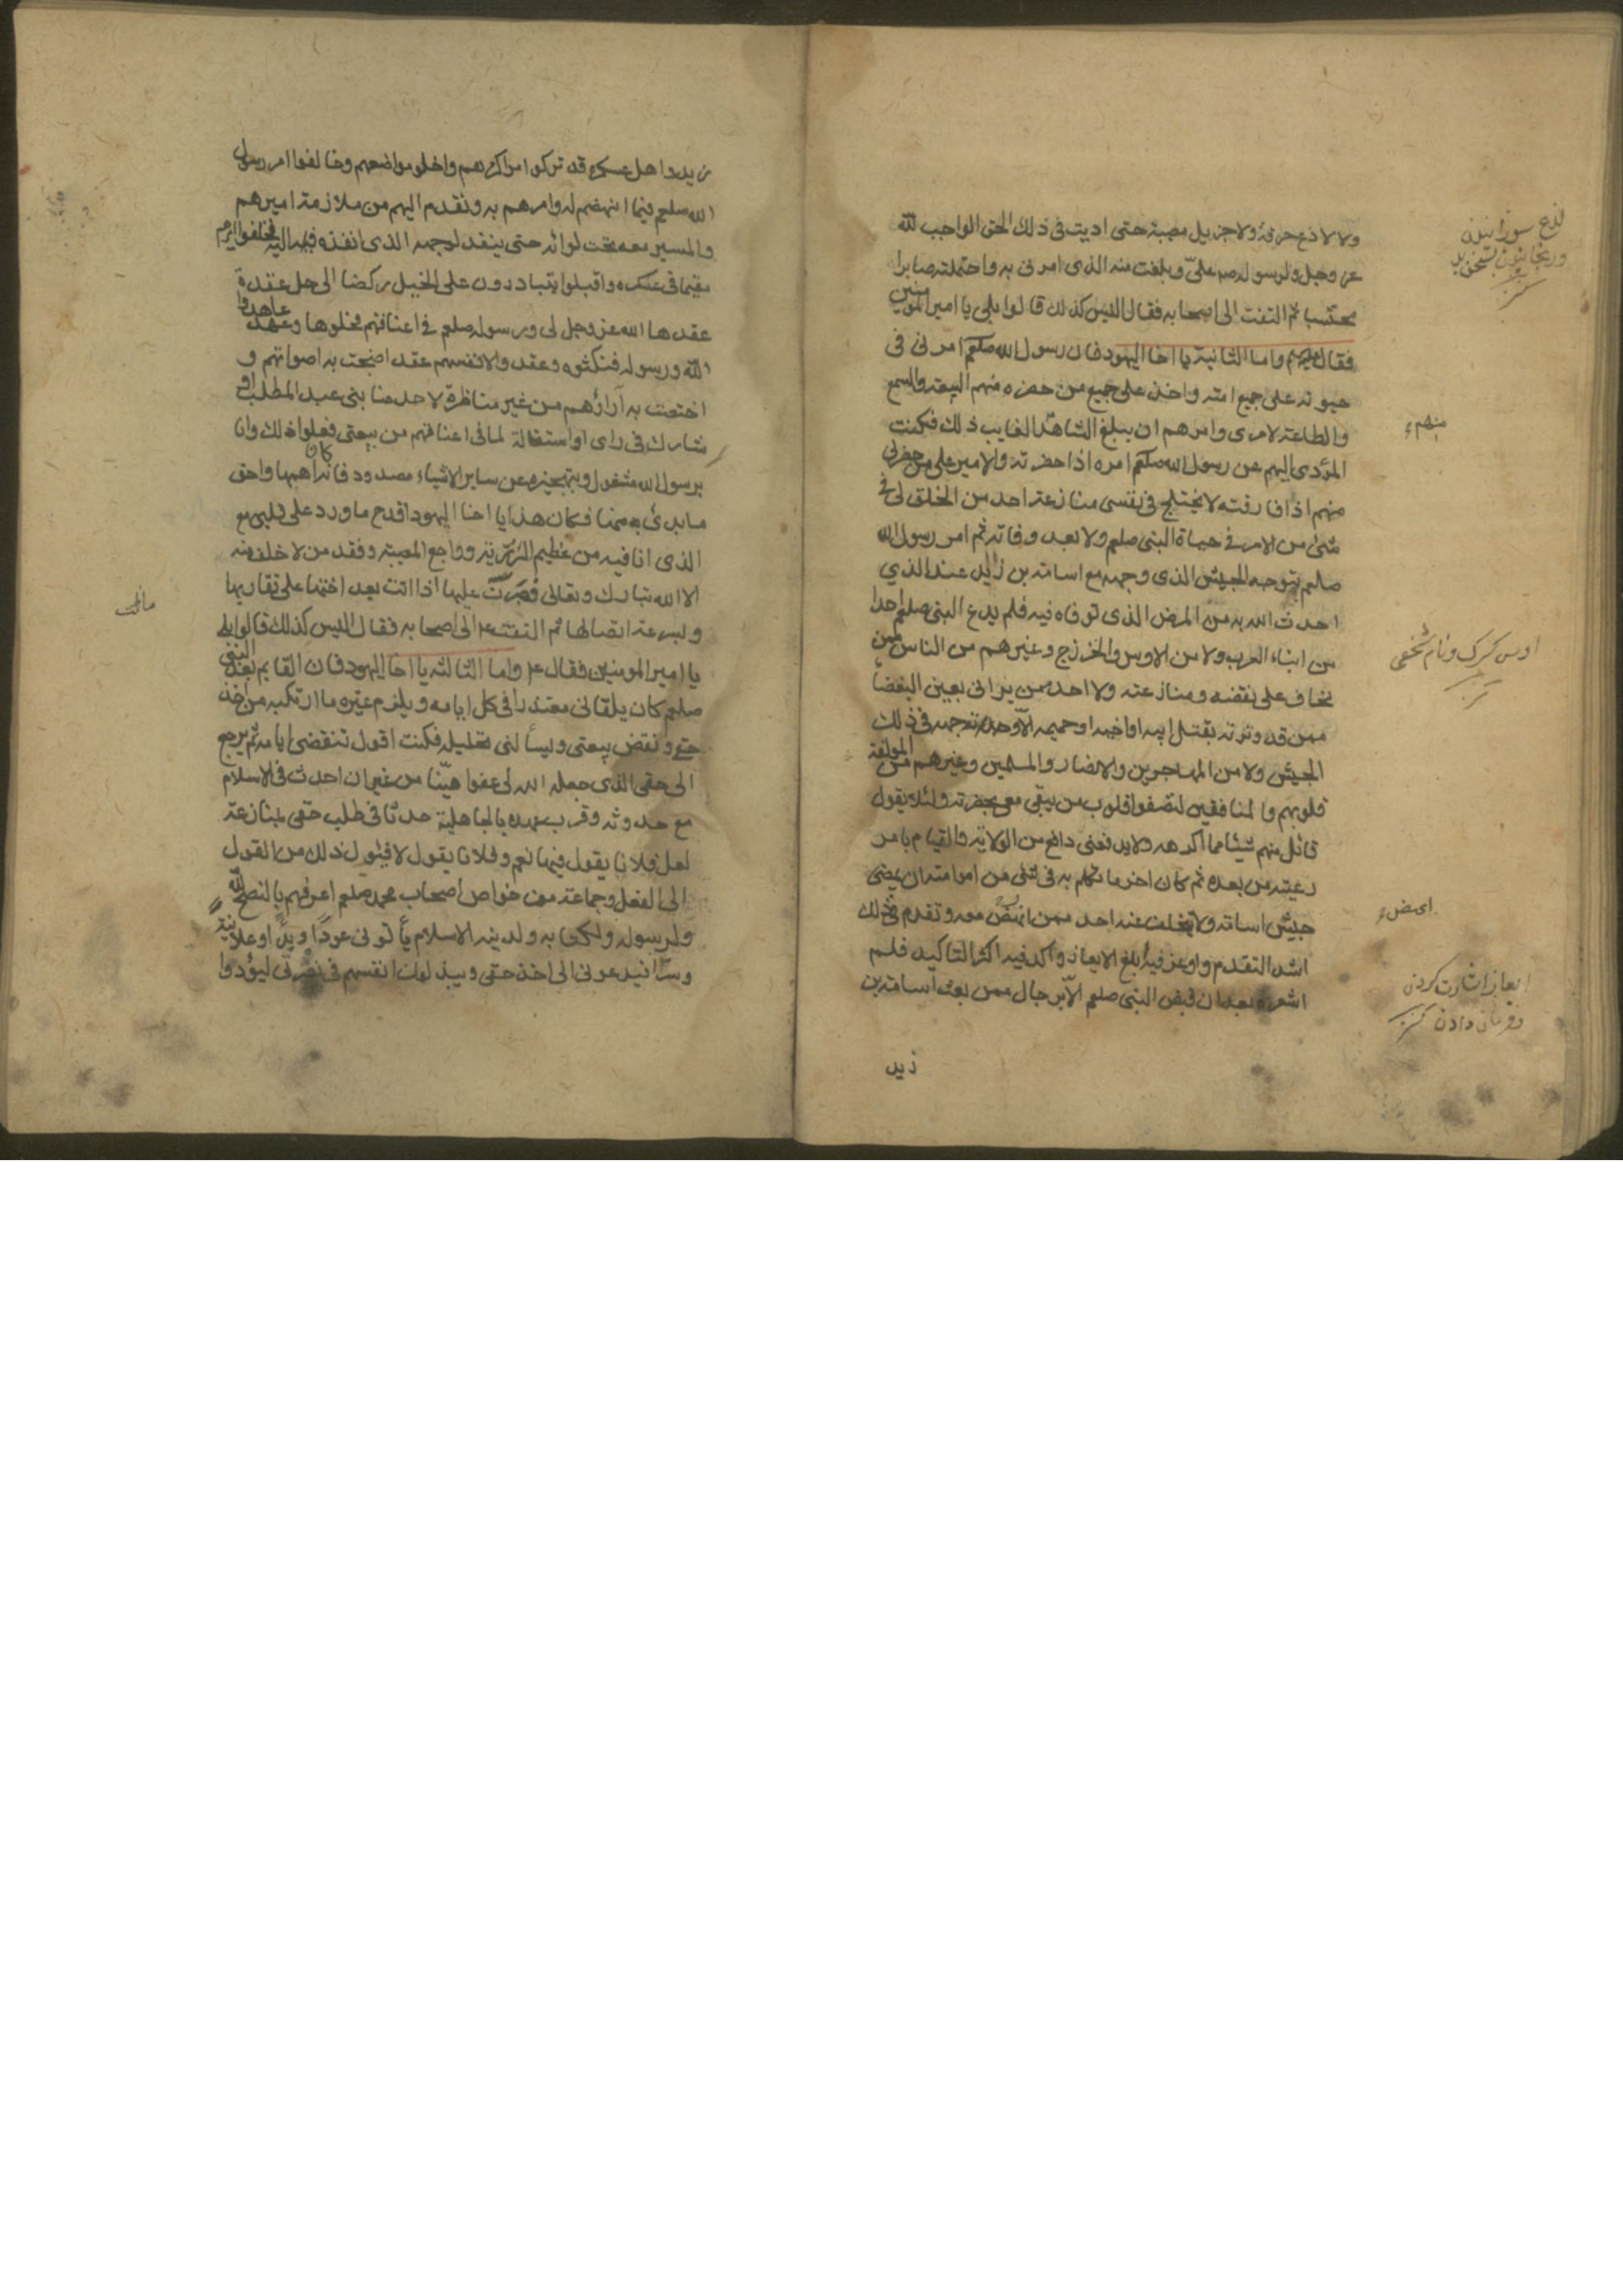 ولا لاذع حرقة ولا جزيل مصيبة حتى اديت فى ذلك الحق الواجب لله
عز وجل ولرسوله صم علىّ وبلغت منه الذى امرنى به واحتملته صابرا
محتسبا ثم التفت الى اصحابه فقال اليس كذلك قالوا بلى يا امير المومنين
فقال واما الثانية يا اخا اليهود فان رسول الله صلعم امرنى فى
حيوته على جميع امته واخذ على جميع من حضره منهم البيعة والسمع
والطاعة لامرى وامرهم ان يبلغ الشاهد الغايب ذلك فكنت
المؤدى اليهم عن رسول الله صلعم امره اذا حضرته والامير على من حضرنى
منهم اذا فارقته لا يختلج فى نفسى منازعة احد من الخلق لى فى
شئ من الامر فى حياة النبى صلعم ولا بعد وفاته ثم امر رسول الله
صلعم بتوجيه الجيش الذى وجهه مع اسامة بن زيد عند الذي
احدث الله به من المرض الذى توفاه فيه فلم يدع النبى صلعم احدا
من ابناء العرب ولا من الاوس والخزرج وغيرهم من الناس ممن
يخاف على نقضه ومنازعته ولا احد ممن يرانى بعين البغضا
ممن قد وترته بقتل ابيه او اخيه او حميمه الا وجهه فى ذلك
الجيش ولا من المهاجرين والانصار والمسلمين وغيرهم من المولفة
قلوبهم والمنافقين لتصفوا قلوب من يبقى معى بحضرته ولئلا يقول
قائل منهم شيئا مما اكرهه ولا يدفعنى دافع من الولاية والقيام بامر
رعيته من بعده ثم كان اخر ما تكلم به فى شئ من امر امته ان يمضى
جيش اسامة ولا يتخلف عنه احد ممن انهض معه وتقدم فى ذلك
اشد التقدم واوعز فيه ابلغ الايعاز واكد فيه اكثر التاكيد فلم
اشعر بعد ان قبض النبى صلعم الا برجال ممن بعث اسامة بن
زيد
لذع سوزانیدن
ورنجانیدن بسخن بد
كنز
منهم
اوس گرگ ونام شخصى
كنز
اى مض
ايعاز اشارت كردن
وفرمان دادن كنز
زيد واهل عسكره قد تركوا مراكزهم واخلو مواضعهم وخالفوا امر رسول
الله صلعم فيما انهضهم له وامرهم به وتقدم اليهم من ملازمة اميرهم
والمسير معه تحت لوائه حتى ينفذ لوجهه الذى انفذه اليه فخلفوا اميرهم
مقيما فى عسكره واقبلوا يتبادرون على الخيل ركضا الى حل عقدة
عقدها الله عز وجل لى ورسوله صلعم فى اعناقهم فحلوها وعهد عاهدوا
الله ورسوله فنكثوه وعقدوا لانفسهم عقدا ضجت به اصواتهم و
اختصت به آراؤهم من غير مناظرة لاحد منا بنى عبد المطلب او
مشاركة فى راى او استقالة لما فى اعناقهم من بيعتى فعلوا ذلك وانا
برسول الله مشغول وبتجهيزه عن ساير الاشياء مصدود فانه كان اهمها واحق
ما بدئ به منها فكان هذا يا اخا اليهود اقدح ما ورد على قلبى مع
الذى انا فيه من عظيم الرزية وفاجع المصيبة وفقد من لا خلف منه
الا الله تبارك وتعالى فصبرت عليها اذا اتت بعد اختها على تقاربها
وسرعة اتصالها ثم التفت ع الى اصحابه فقال اليس كذلك قالوا بلى
يا امير المومنين فقال ع واما الثالثة يا اخا اليهود فان القايم بعد النبى
صلعم كان يلقانى معتذرا فى كل ايامه ويلزم غيره ما ارتكبه من اخذ
حقى ونقض بيعتى ويسألنى تحليله فكنت اقول تنقضى ايامه ثم يرجع
الى حقى الذى جعله الله لى عفوا هينّا من غير ان احدث فى الاسلام
مع حدوثه وقرب عهده بالجاهلية حدثا فى طلب حقى بمنازعة
لعل فلانا يقول فيها نعم وفلانا يقول لا فيئول ذلك من القول
الى الفعل وجماعة من خواص اصحاب محمد صلعم اعرفهم بالنصح لله
ولرسوله ولكتابه ولدينه الاسلام يأتونى عودًا وبدًا وعلانية
وسرّا فيدعونى الى اخذ حقى ويبذلون انفسهم فى نصرتى ليؤدوا